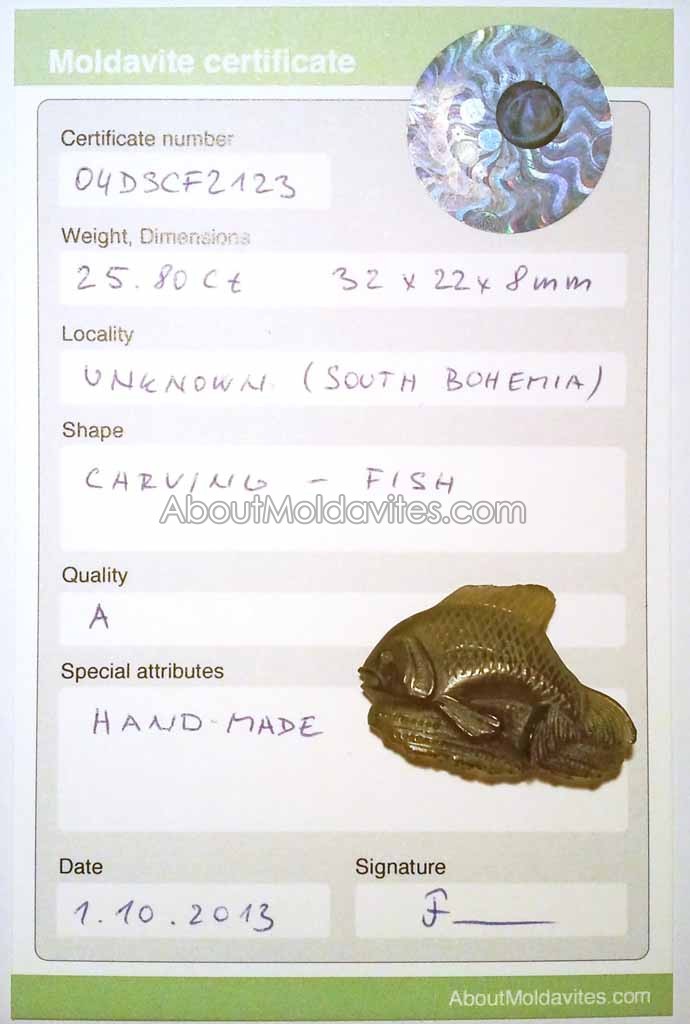 Moldavite certificate
Certificate number
04D3CF2123
Weight, Dimensions
25.80 Ct 32 x 22 x 8 mm
Locality
UNKNOWN (SOUTH BOHEMIA)
Shape
CARVING - FISH
AboutMoldavites.com
Quality
A
Special attributes
HAND-MADE
Date
Signature
1.10.2013
AboutMoldavites.com